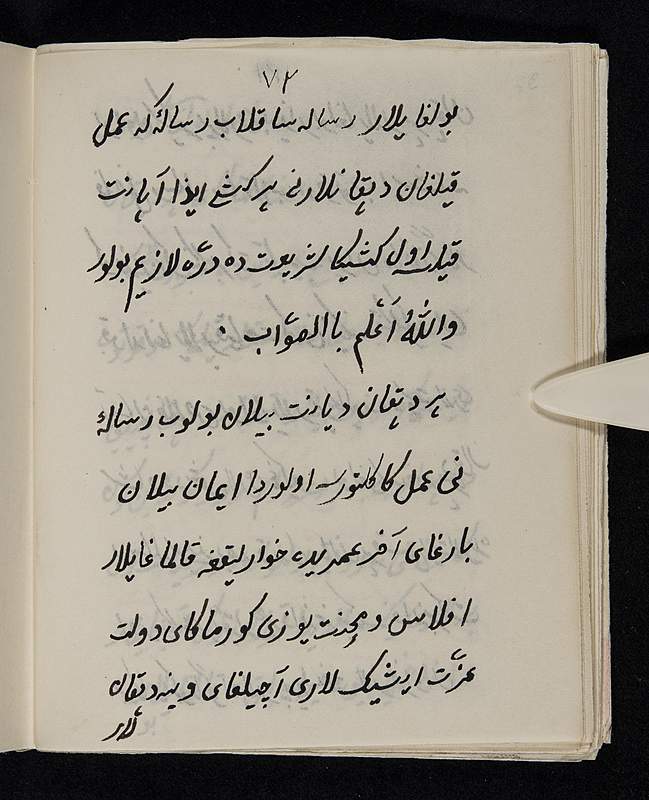 ٧٢
بولغایلار رساله سا قلاب رسالهٔ که عمل
قیلغان دهقا نلارنی هر کشی ایذا آهانت
قیلسه اول کشیکا شریعت ده درّه لازیم بولور
واللّهُ اَعْلم باالصوّاب .
هر دهقان دیانت بیلان بولوب رسالهٔ
نی عمل کا کلتورسه اولوردا ایمان بیلان
بارغای آخر عمریده خوارلیقغه قالماغایلار
افلاس و محنت یوزی کورماکای دولت
عزّت ایشیک لاری آچیلغای وینه دهقان
لار